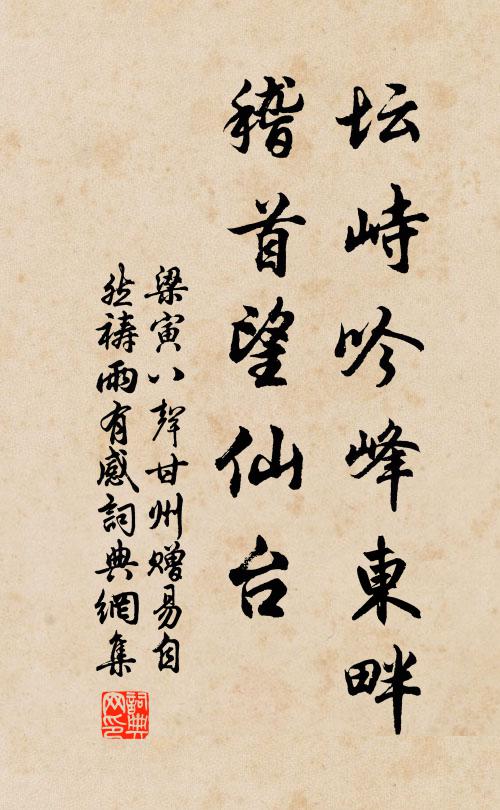 坛峙吟峰東畔
稽首望仙台
梁寅八聲甘州赠易自
然祷雨有感詞典網集
詞典
网印